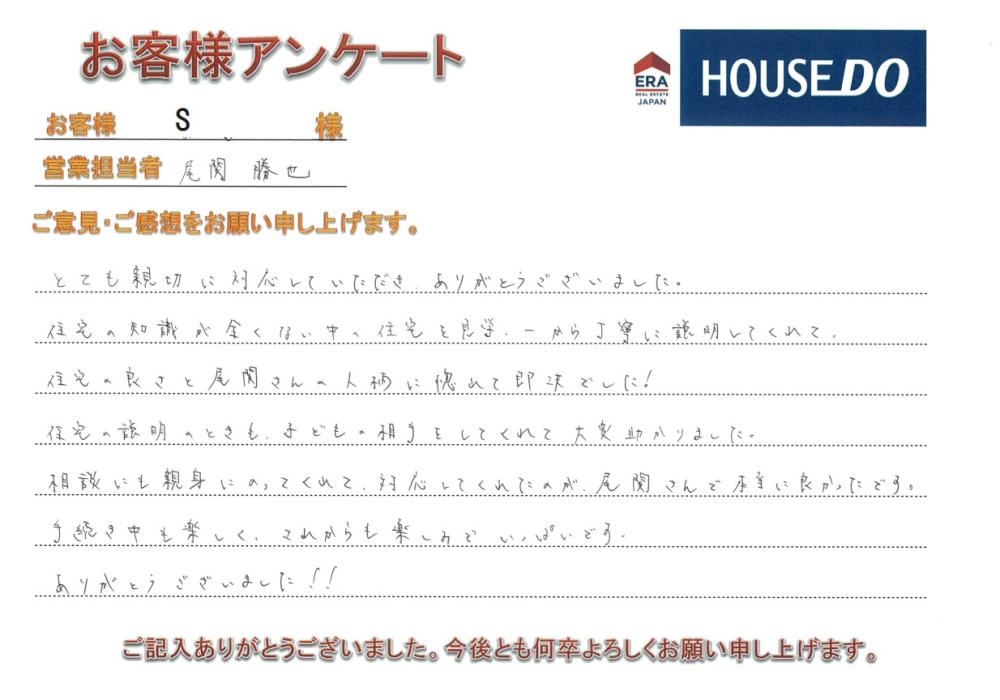 お客様アンケート
ERA
REAL ESTATE
JAPAN
HOUSE DO
お客様 S 様
営業担当者 尾関 勝也
ご意見・ご感想をお願い申し上げます。
とても親切に対応していただき、ありがとうございました。
住宅の知識が全くない中、住宅を見学、一から丁寧に説明してくれて、
住宅の良さと尾関さんの人柄に惚れて即決でした!
住宅の説明のときも、子どもの相手をしてくれて大変助かりました。
相談にも親身にのってくれて、対応してくれたのが、尾関さんで本当に良かったです。
手続き中も楽しく、これからも楽しみでいっぱいです。
ありがとうございました!!
ご記入ありがとうございました。今後とも何卒よろしくお願い申し上げます。